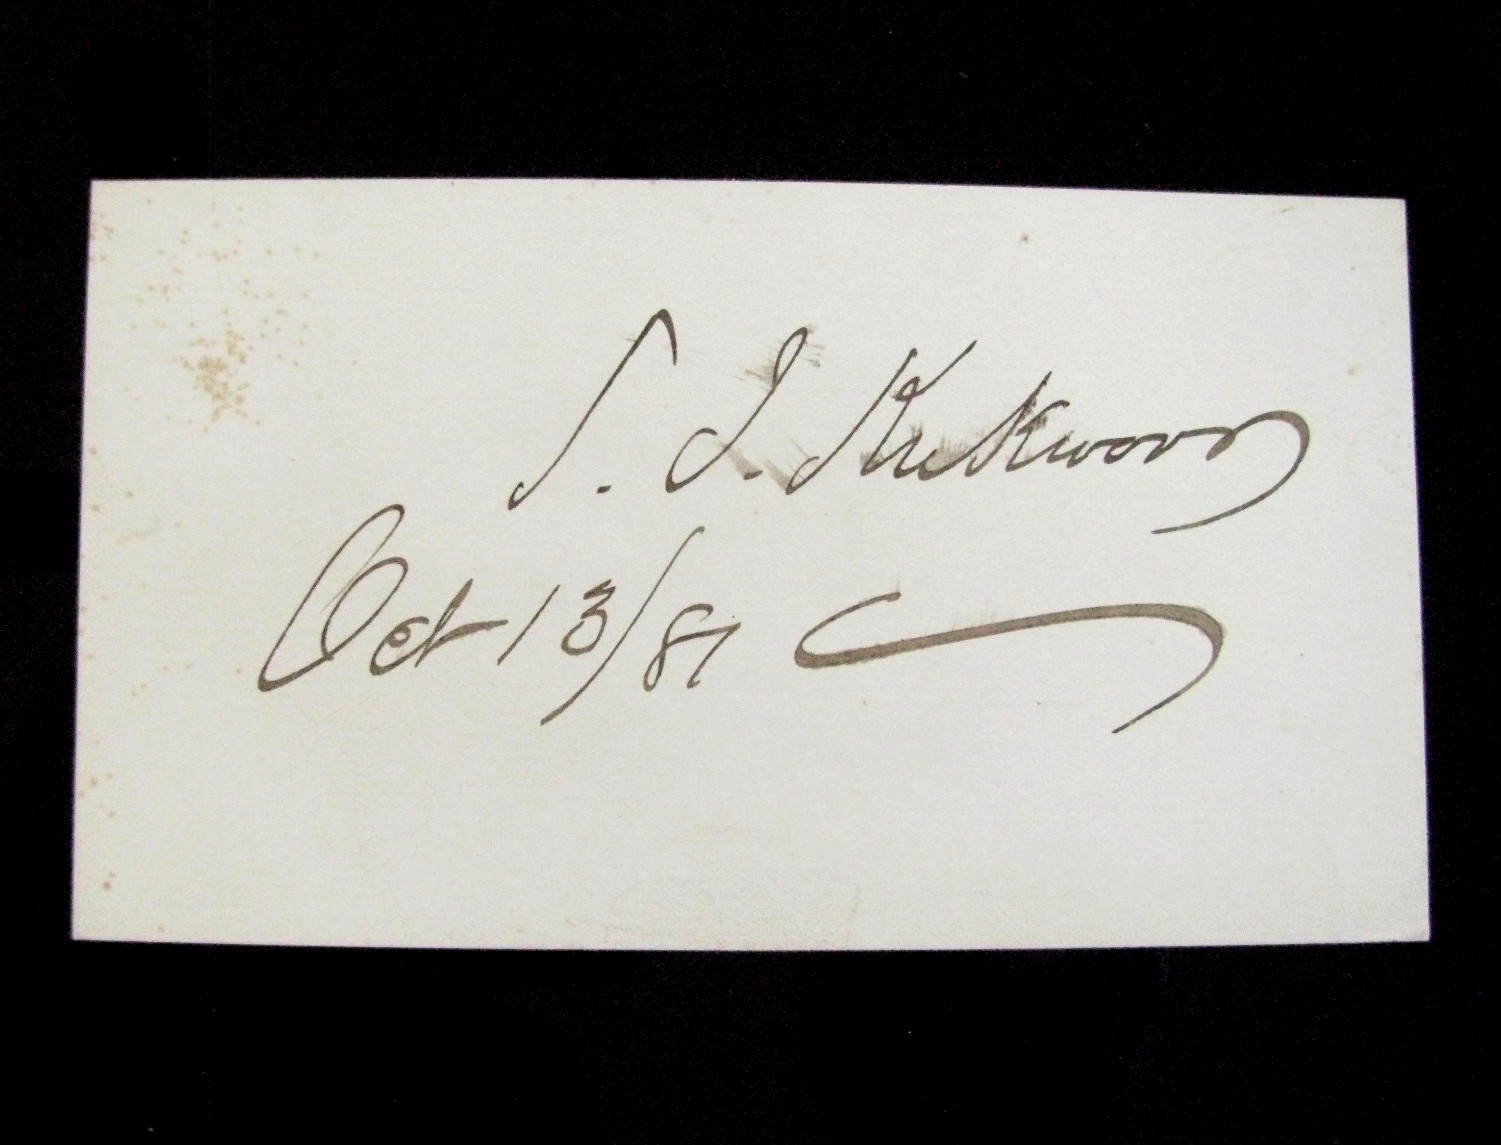 S. J. Kirkwood
Oct 13/81